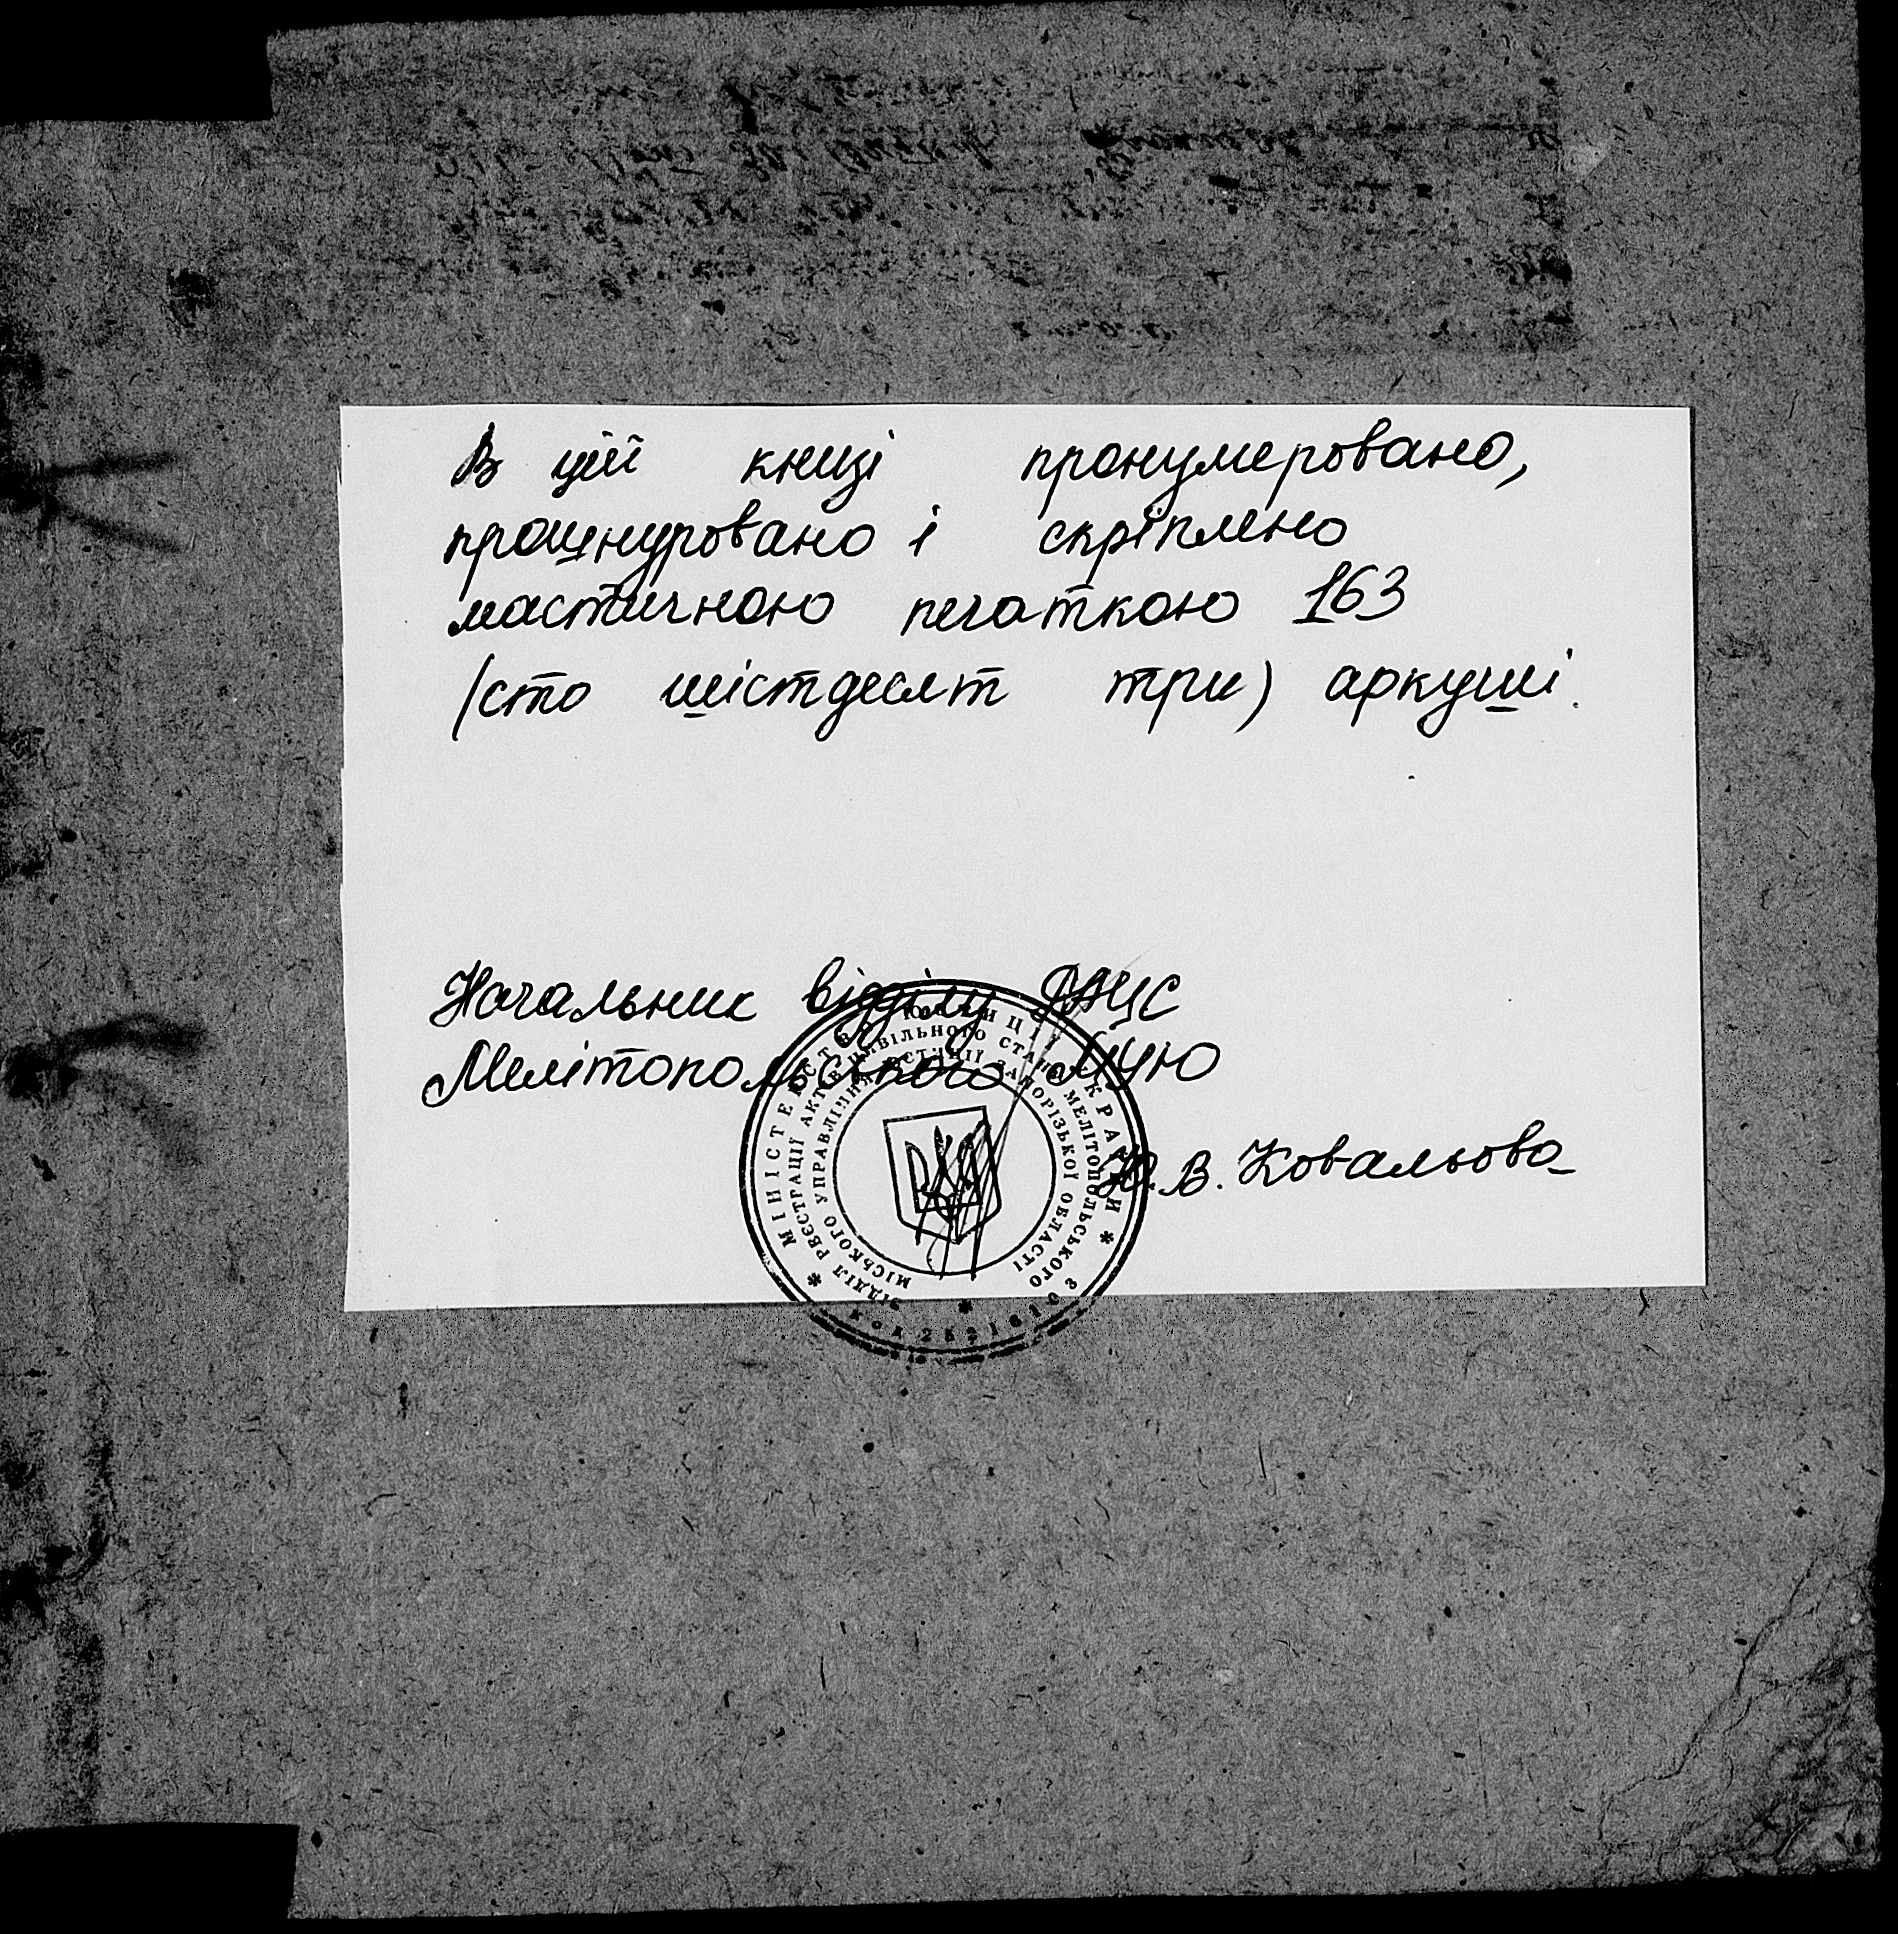 В цій книзі пронумеровано,
прошнуровано і скріплено
мастичною печаткою 163
(сто шістдесят три) аркуші.
Начальник відділу РАЦС
Мелітопольського МУЮ
Ю.В. Ковальова
МІНІСТЕРСТВО ЮСТИЦІЇ УКРАЇНИ
ВІДДІЛ РЕЄСТРАЦІЇ АКТІВ ЦИВІЛЬНОГО СТАНУ МЕЛІТОПОЛЬСЬКОГО
МІСЬКОГО УПРАВЛІННЯ ЮСТИЦІЇ ЗАПОРІЗЬКОЇ ОБЛАСТІ